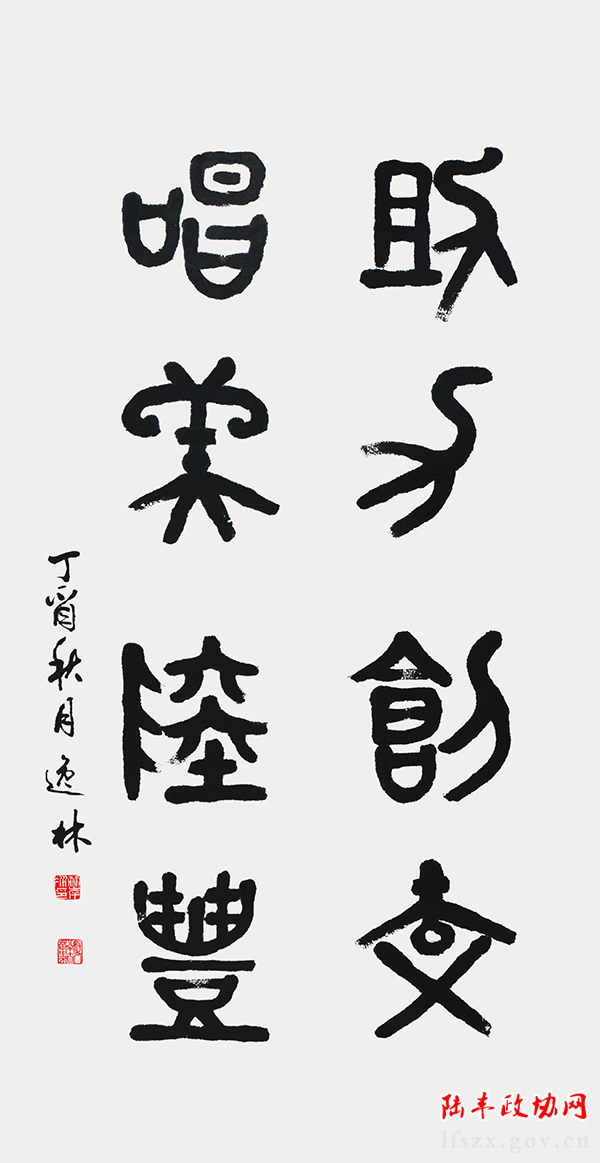 助力創文
唱美陸豐
丁酉秋月逸林
陆丰政协网
lfszx.gov.cn